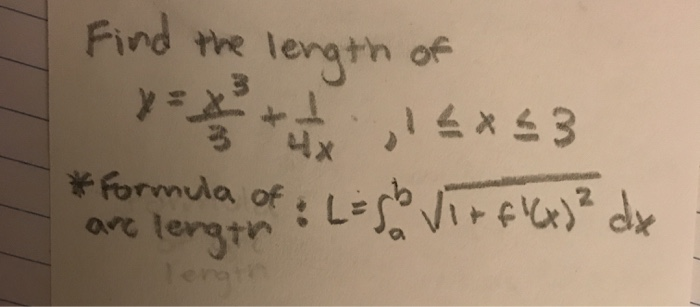 Find the length of
y = x³/3 + 1/4x , 1 ≤ x ≤ 3
* formula of arc length : L = ∫ₐᵇ √1 + f'(x)² dx
length